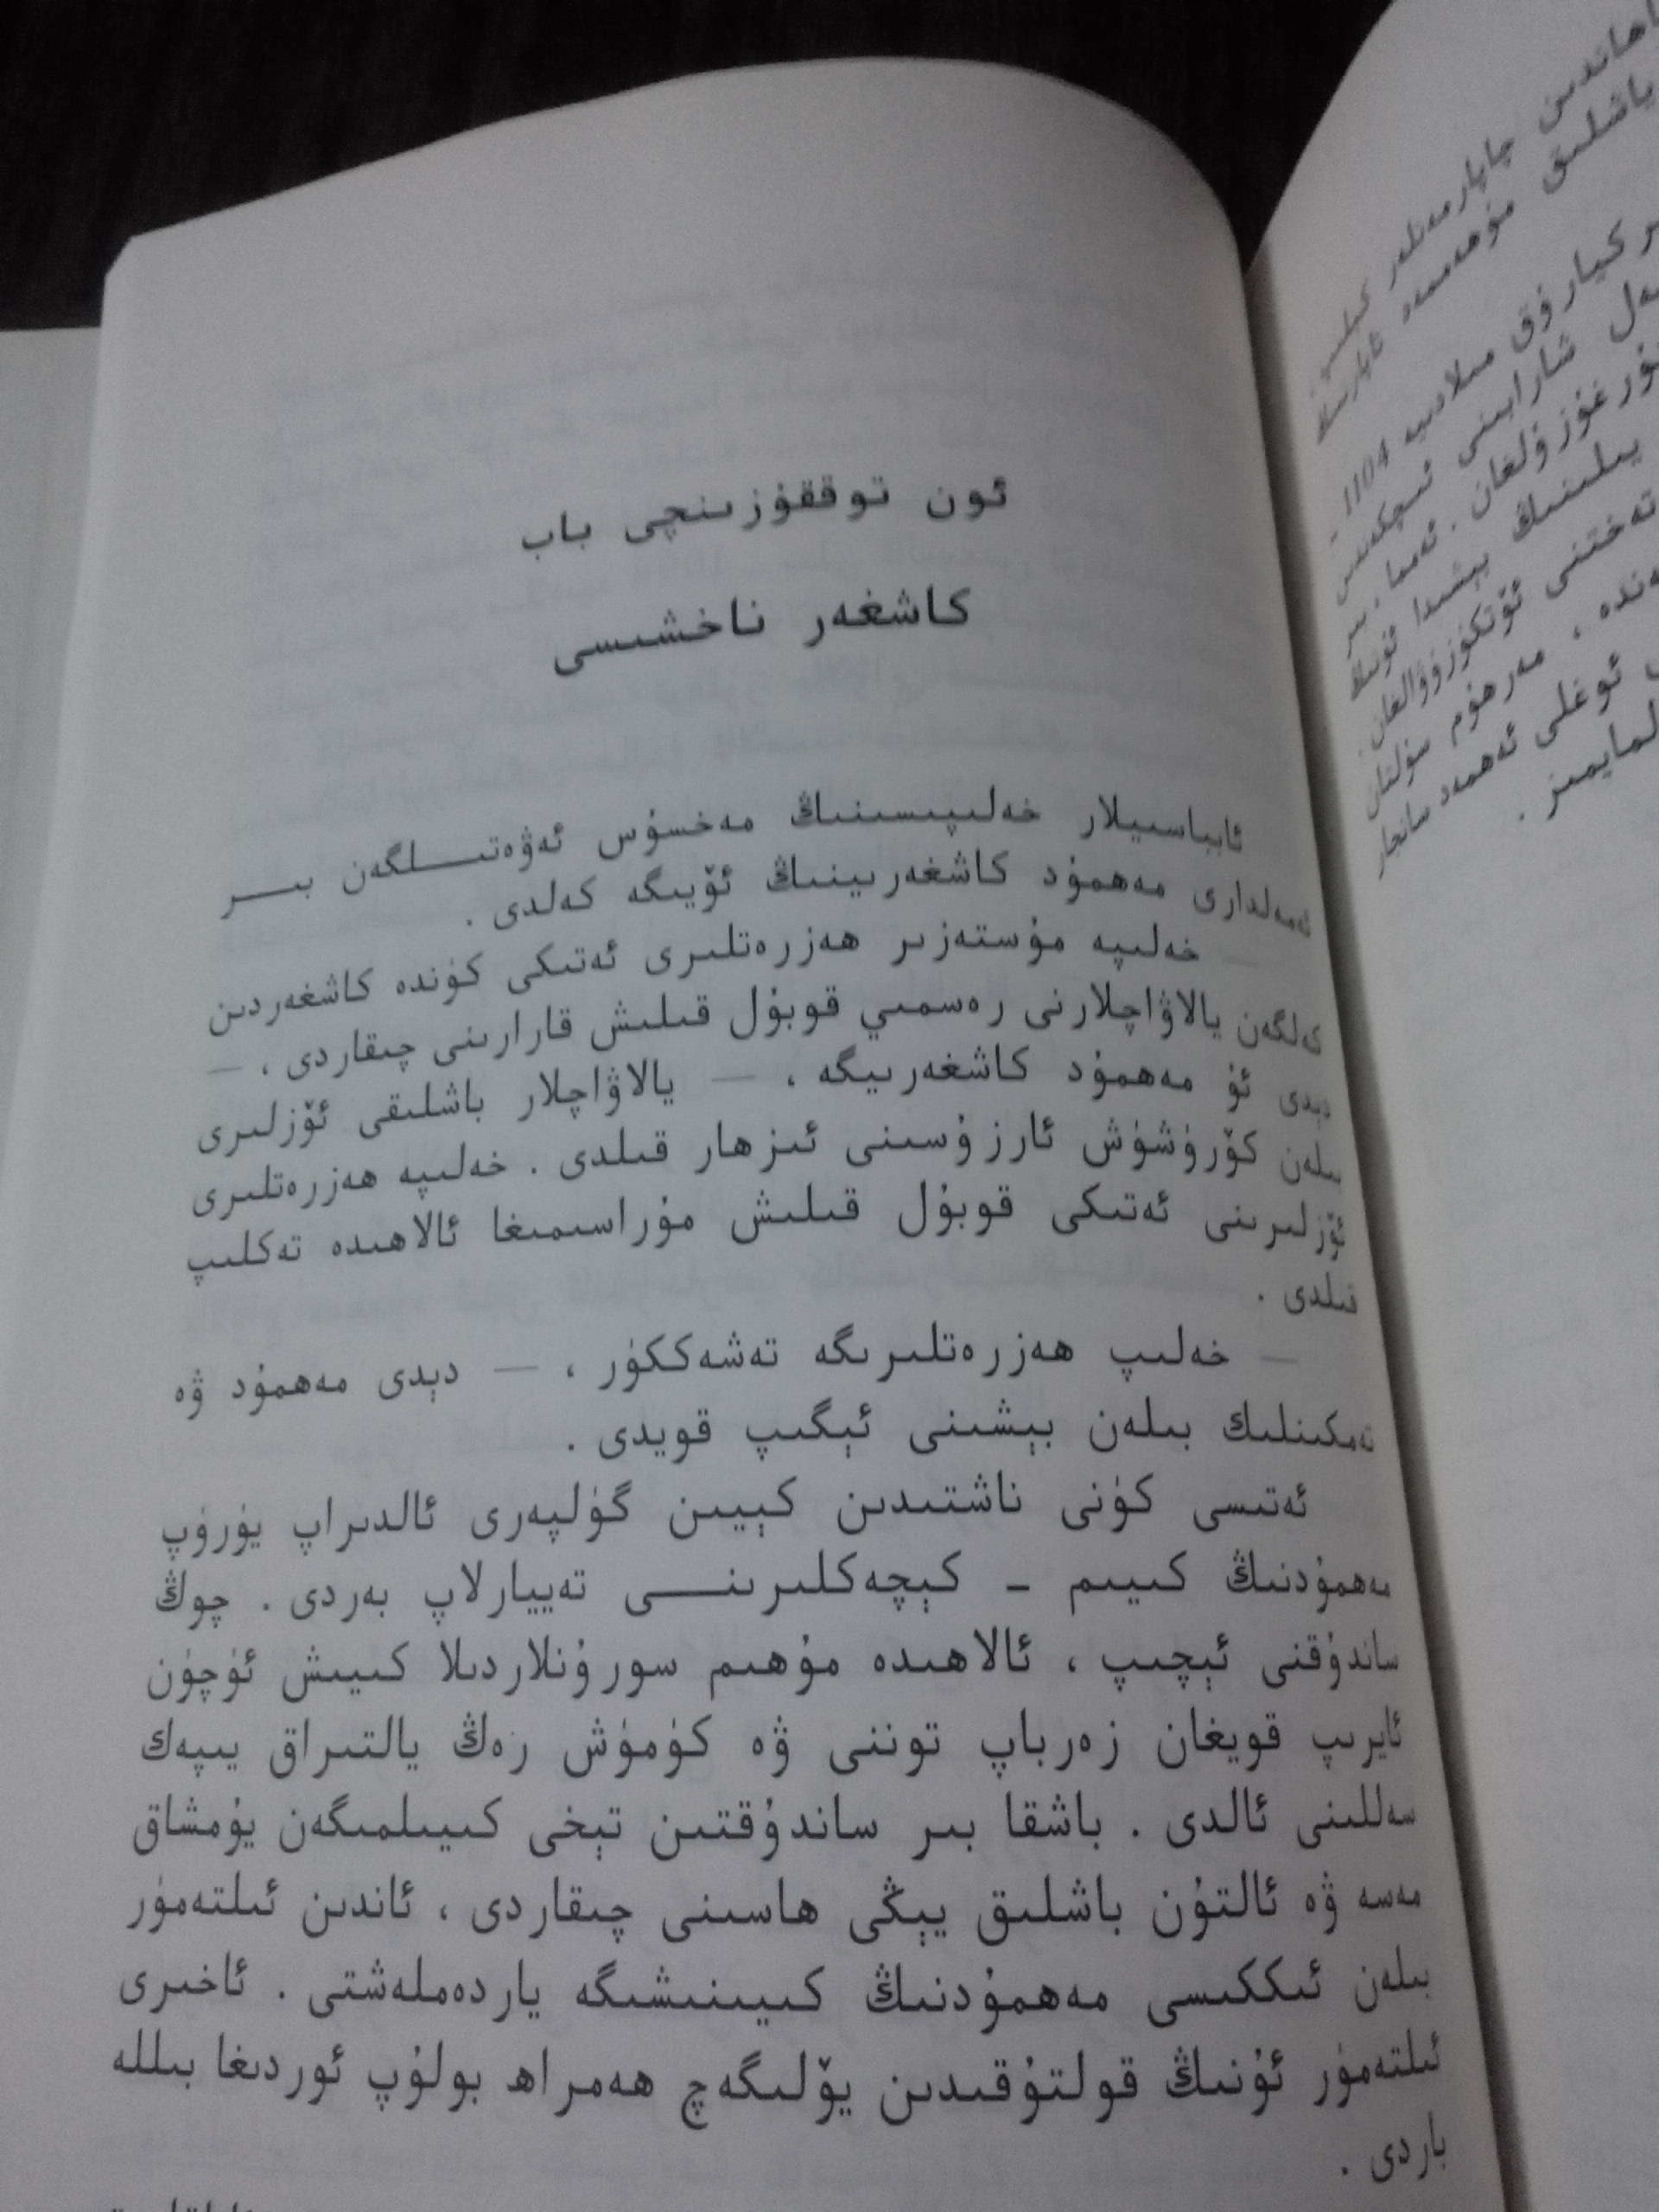 ئون توققۇزىنچى باب
كاشغەر ناخشىسى
ئابباسىيلار خەلىپىسىنىڭ مەخسۇس ئەۋەتىلگەن بىر
ئەمەلدارى مەھمۇد كاشغەرىينىڭ ئۆيىگە كەلدى .
— خەلىپە مۇستەزىر ھەزرەتلىرى ئەتىكى كۈندە كاشغەردىن
كەلگەن يالاۋاچلارنى رەسمىي قوبۇل قىلىش قارارىنى چىقاردى ، —
دېدى ئۇ مەھمۇد كاشغەرىيگە ، — يالاۋاچلار باشلىقى ئۆزلىرى
بىلەن كۆرۈشۈش ئارزۇسىنى ئىزھار قىلدى . خەلىپە ھەزرەتلىرى
ئۆزلىرىنى ئەتىكى قوبۇل قىلىش مۇراسىمىغا ئالاھىدە تەكلىپ
قىلدى .
— خەلىپ ھەزرەتلىرىگە تەشەككۈر ، — دېدى مەھمۇد ۋە
تەمكىنلىك بىلەن بېشىنى ئېگىپ قويدى .
ئەتىسى كۈنى ناشتىدىن كېيىن گۈلپەرى ئالدىراپ يۈرۈپ
مەھمۇدنىڭ كىيىم - كېچەكلىرىنى تەييارلاپ بەردى . چوڭ
ساندۇقنى ئېچىپ ، ئالاھىدە مۇھىم سورۇنلاردىلا كىيىش ئۈچۈن
ئايرىپ قويغان زەرباپ توننى ۋە كۈمۈش رەڭ يالتىراق يىپەك
سەللىنى ئالدى . باشقا بىر ساندۇقتىن تېخى كىيىلمىگەن يۇمشاق
مەسە ۋە ئالتۇن باشلىق يېڭى ھاسىنى چىقاردى ، ئاندىن ئىلتەمۈر
بىلەن ئىككىسى مەھمۇدنىڭ كىيىنىشىگە ياردەملەشتى . ئاخىرى
ئىلتەمۈر ئۇنىڭ قولتۇقىدىن يۆلىگەچ ھەمراھ بولۇپ ئوردىغا بىللە
باردى .
چاپارمەنلەر
ياشلىق مۇھەممەد تاپارنىڭ
كىيارۇق مىلادىيە 1104 -
شارابىنى ئىچكەن
يىلىنىڭ بېشىدا ئۇنىڭ
تەختنى ئۆتكۈزۈۋالغان .
، مەرھۇم سۇلتان
ئوغلى ئەھمەد سانجار